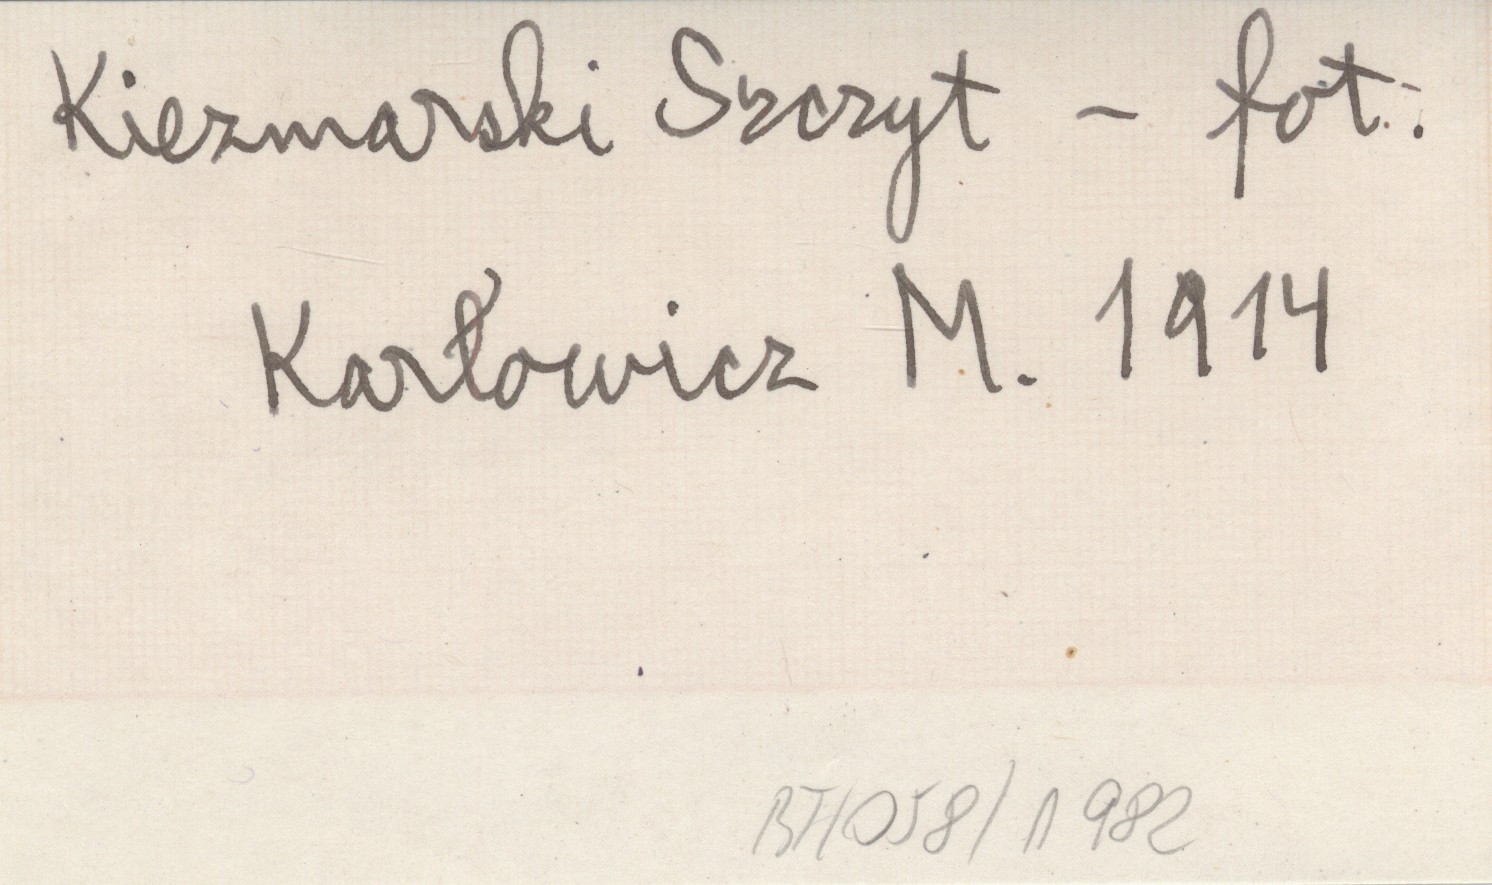 Kiezmarski Szczyt - fot.
Karłowicz M. 1914
BT/058/1982